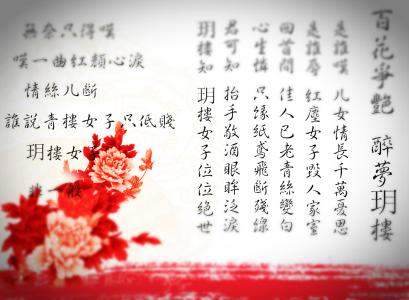 百花爭艷 醉夢玥樓
是誰嘆 儿女情長千萬憂思
是誰辱 紅塵女子毀人家室
回首問 佳人已老青絲變白
心生憐 只緣紙鳶飛斷殘線
君可知 抬手敬酒眼眸泛淚
玥樓知 玥樓女子位位絕世
無奈只得嘆
嘆一曲紅顏心淚
情絲儿斷
誰說青樓女子只低賤
玥樓女子
一般